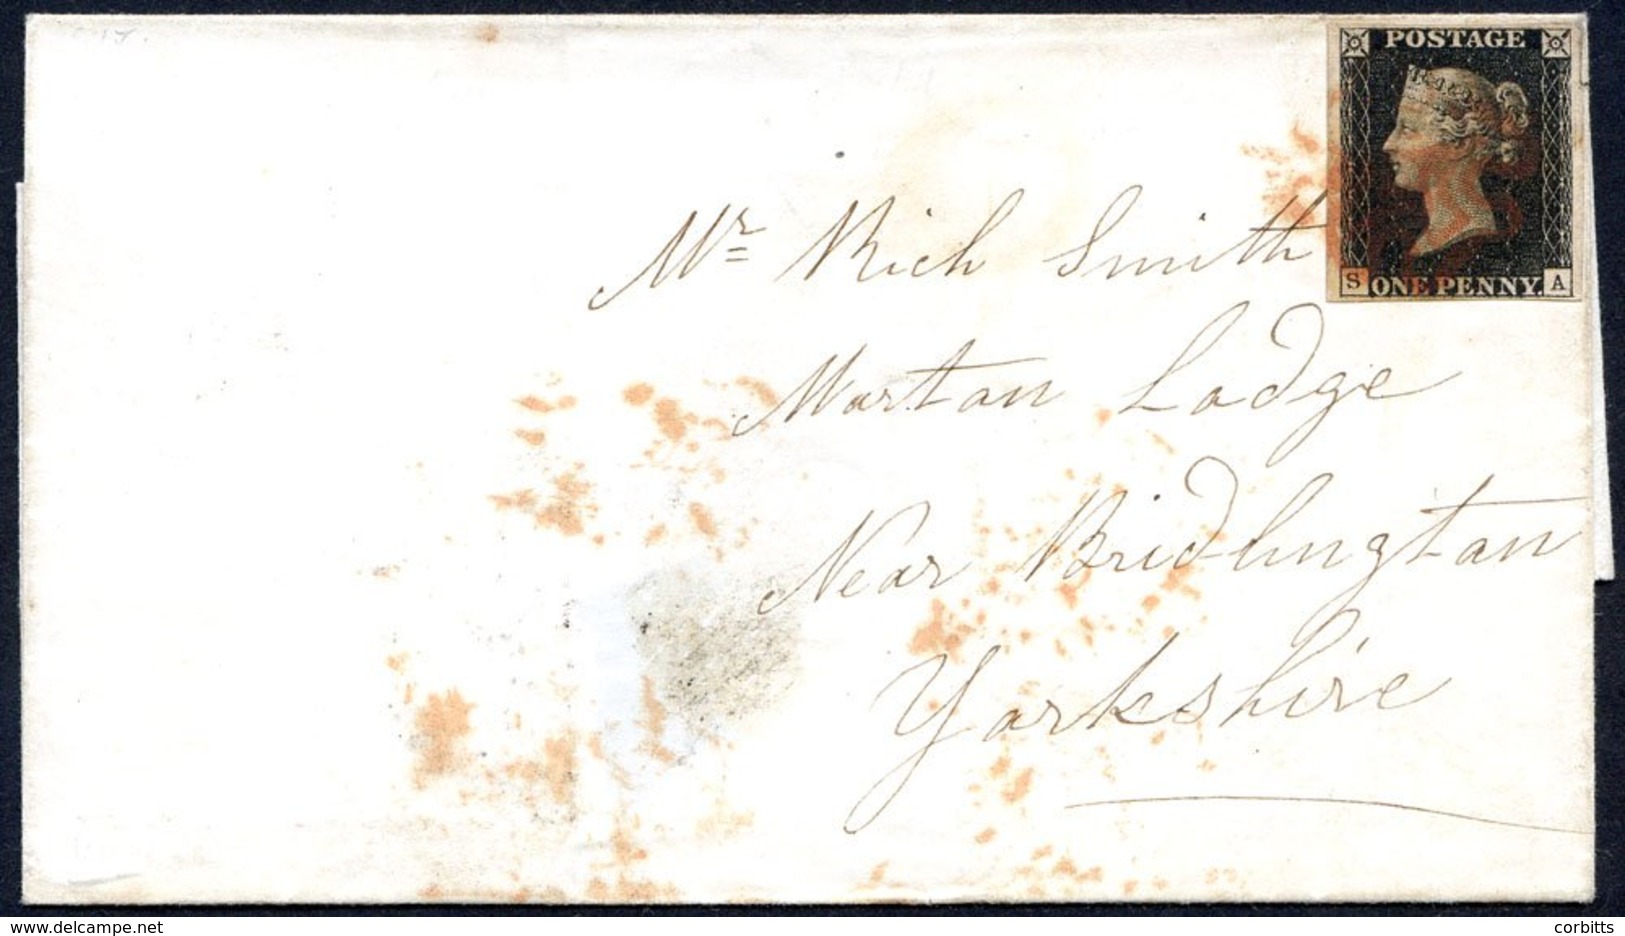 POSTAGE
S ONE PENNY. A
Mr Rich Smith
Martan Lodge
Near Bridlington
Yorkshire
delcampe.net
corbitts